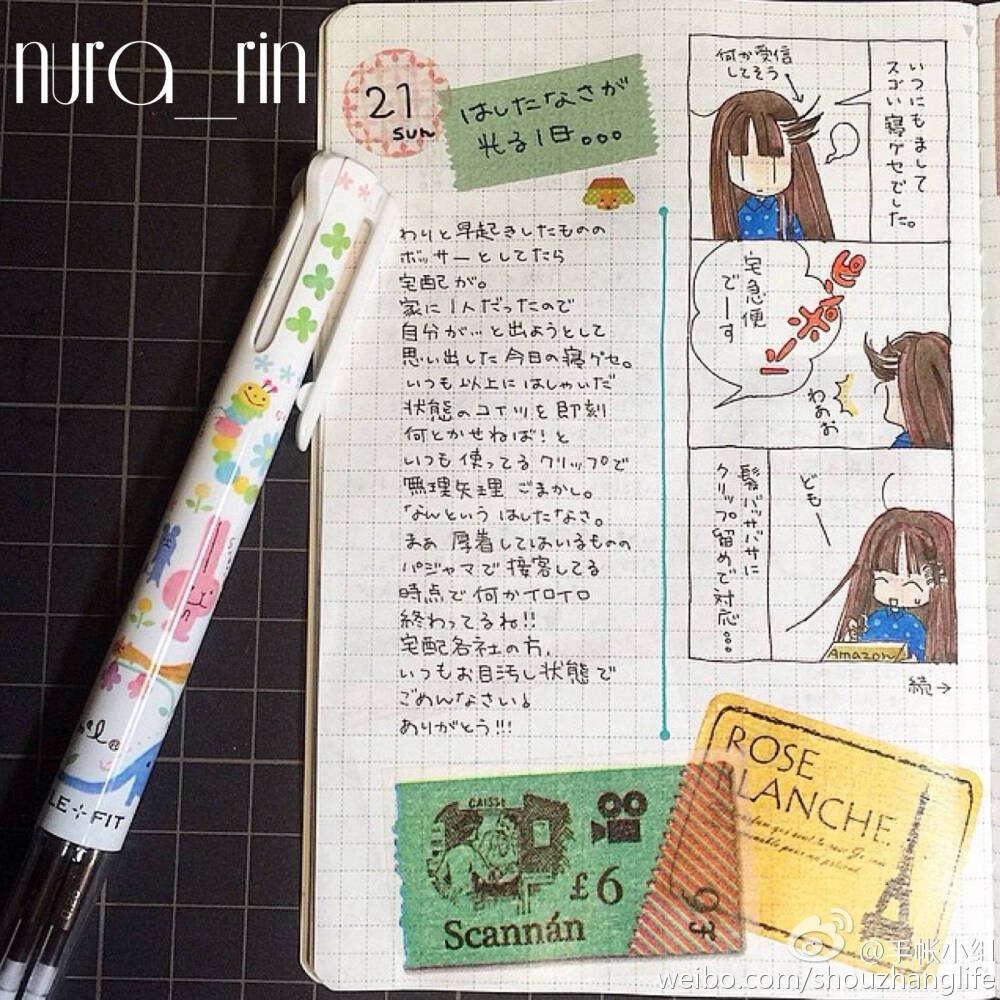 nura_rin
21
sun
はしたなさが
光る1日。。。
わりと早起きしたものの
ボッサーとしてたら
宅配が。
家に1人だったので
自分が…と出ようとして
思い出した今日の寝グセ。
いつも以上にはしゃいだ
状態のコイツを即刻
何とかせねば!と
いつも使ってるクリップで
無理矢理ごまかし。
なんというはしたなさ。
まあ厚着してはいるものの
パジャマで接客してる
時点で何かイロイロ
終わってるね!!
宅配各社の方、
いつもお目汚し状態で
ごめんなさい!
ありがとう!!!
いつにもまして
スゴい寝グセでした。
何か受信
してそう
宅急便
でーす
わあお
髪バッサバサに
クリップ留めで対応。。。
どもー
Amazon
続→
CAISSE
£6
Scannán
£6
ROSE
BLANCHE
LE+FIT
@手帐小组
weibo.com/shouzhanglife